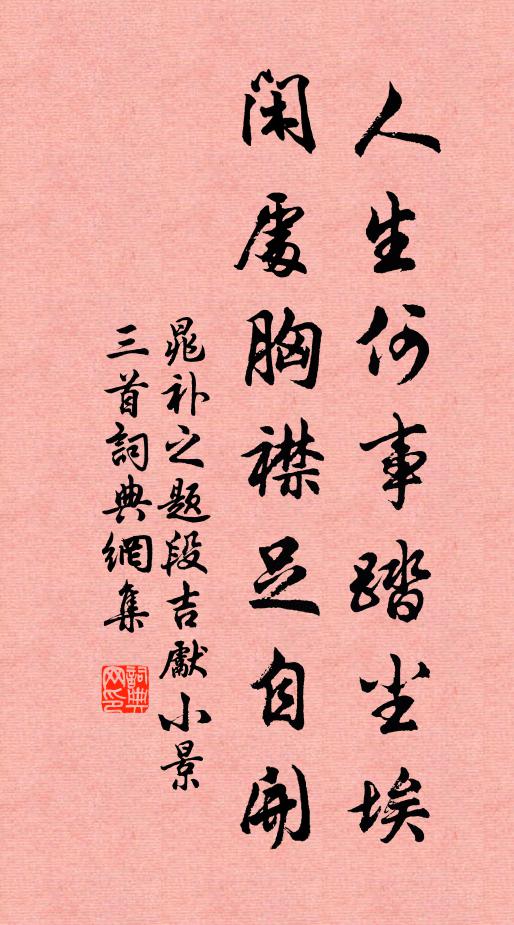 人生何事踏尘埃
闲處胸襟足自開
晁补之题段吉獻小景
三首詞典網集
詞典网印